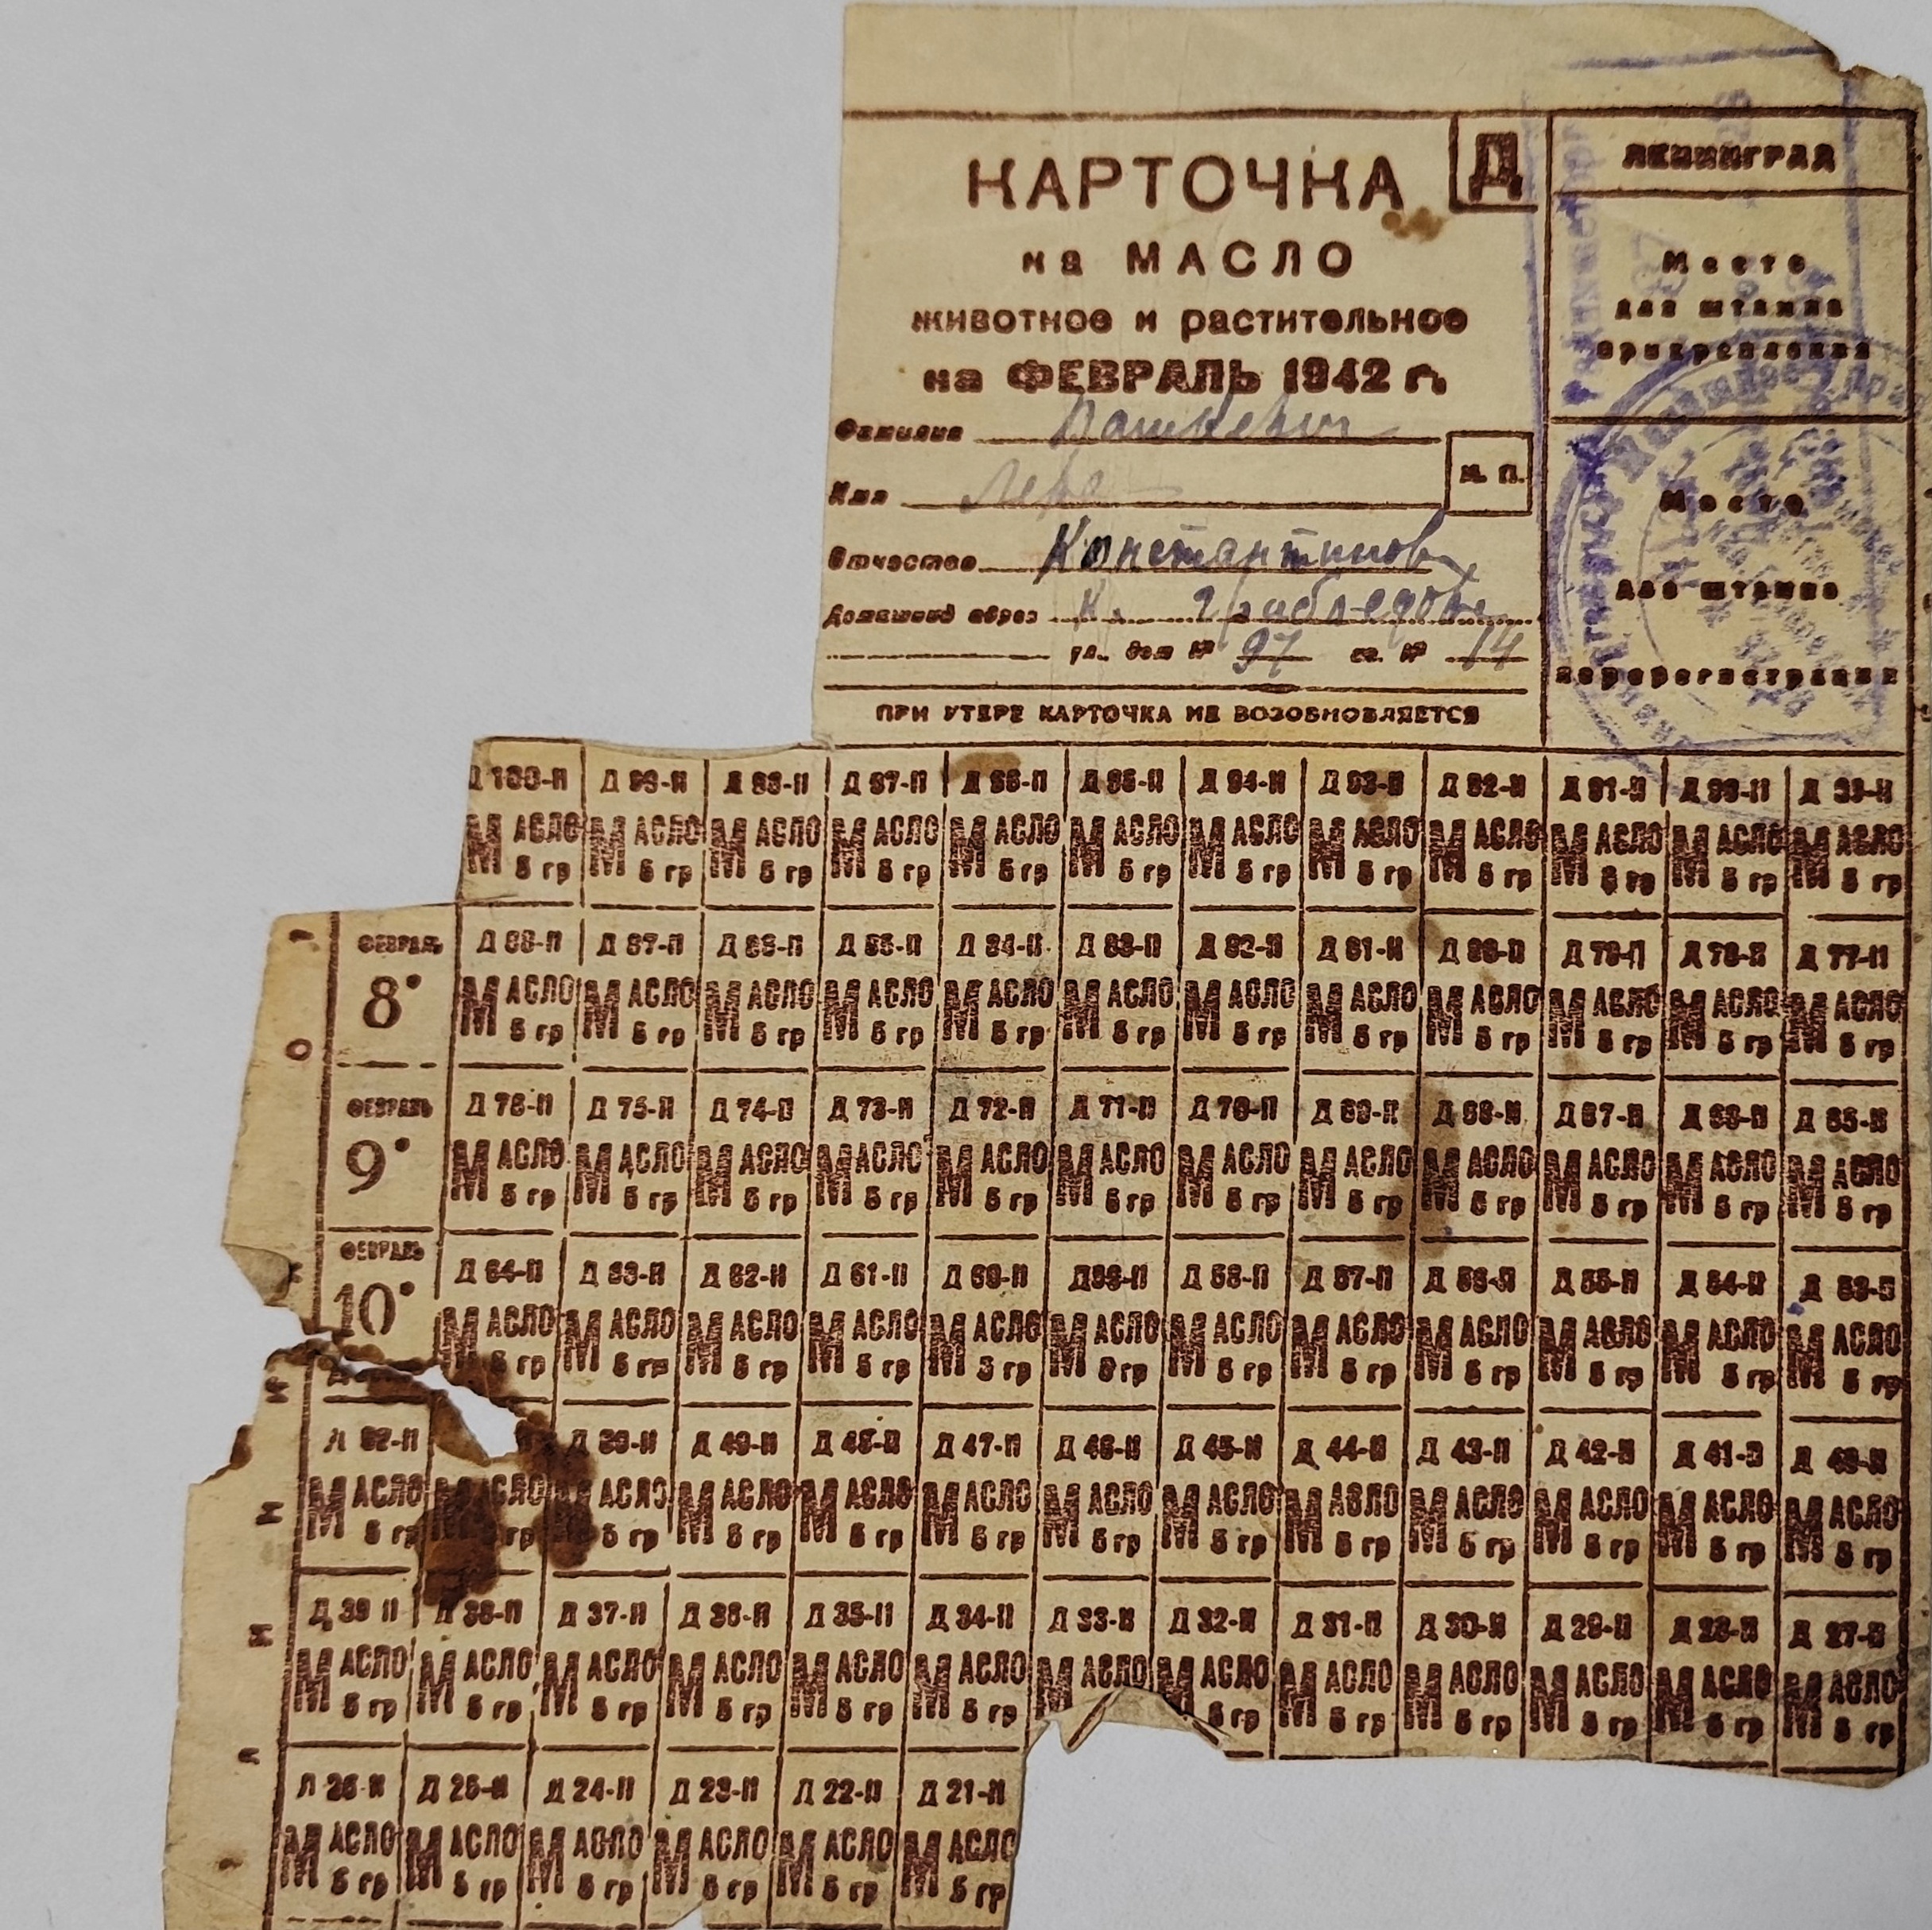 КАРТОЧКА Д
на МАСЛО
животное и растительное
на ФЕВРАЛЬ 1942 г.
Фамилия
Имя
М. П.
Отчество Константинов
Домашний адрес К.
ул. дом № 97 кв. № 14
ПРИ УТЕРЕ КАРТОЧКА НЕ ВОЗОБНОВЛЯЕТСЯ
ЛЕНИНГРАД
Место
для штампа
прикрепления
Место
для штампа
перерегистрации
Д 100-П Д 99-П Д 98-П Д 97-П Д 96-П Д 95-П Д 94-П Д 93-П Д 92-П Д 91-П Д 90-П Д 89-П
МАСЛО МАСЛО МАСЛО МАСЛО МАСЛО МАСЛО МАСЛО МАСЛО МАСЛО МАСЛО МАСЛО МАСЛО
5 гр 5 гр 5 гр 5 гр 5 гр 5 гр 5 гр 5 гр 5 гр 5 гр 5 гр 5 гр
ФЕВРАЛЬ Д 88-П Д 87-П Д 86-П Д 85-П Д 84-П Д 83-П Д 82-П Д 81-П Д 80-П Д 79-П Д 78-П Д 77-П
8• МАСЛО МАСЛО МАСЛО МАСЛО МАСЛО МАСЛО МАСЛО МАСЛО МАСЛО МАСЛО МАСЛО МАСЛО
5 гр 5 гр 5 гр 5 гр 5 гр 5 гр 5 гр 5 гр 5 гр 5 гр 5 гр 5 гр
ФЕВРАЛЬ Д 76-П Д 75-П Д 74-П Д 73-П Д 72-П Д 71-П Д 70-П Д 69-П Д 68-П Д 67-П Д 66-П Д 65-П
9• МАСЛО МАСЛО МАСЛО МАСЛО МАСЛО МАСЛО МАСЛО МАСЛО МАСЛО МАСЛО МАСЛО МАСЛО
5 гр 5 гр 5 гр 5 гр 5 гр 5 гр 5 гр 5 гр 5 гр 5 гр 5 гр 5 гр
ФЕВРАЛЬ Д 64-П Д 63-П Д 62-П Д 61-П Д 60-П Д 59-П Д 58-П Д 57-П Д 56-П Д 55-П Д 54-П Д 53-П
10• МАСЛО МАСЛО МАСЛО МАСЛО МАСЛО МАСЛО МАСЛО МАСЛО МАСЛО МАСЛО МАСЛО МАСЛО
5 гр 5 гр 5 гр 5 гр 5 гр 5 гр 5 гр 5 гр 5 гр 5 гр 5 гр 5 гр
Д 52-П Д 50-П Д 49-П Д 48-П Д 47-П Д 46-П Д 45-П Д 44-П Д 43-П Д 42-П Д 41-П Д 40-П
МАСЛО МАСЛО МАСЛО МАСЛО МАСЛО МАСЛО МАСЛО МАСЛО МАСЛО МАСЛО МАСЛО МАСЛО МАСЛО
5 гр гр 5 гр 5 гр 5 гр 5 гр 5 гр 5 гр 5 гр 5 гр 5 гр 5 гр 5 гр
Д 39 П Д 38-П Д 37-П Д 36-П Д 35-П Д 34-П Д 33-П Д 32-П Д 31-П Д 30-П Д 29-П Д 28-П Д 27-П
МАСЛО МАСЛО МАСЛО МАСЛО МАСЛО МАСЛО МАСЛО МАСЛО МАСЛО МАСЛО МАСЛО МАСЛО МАСЛО
5 гр 5 гр 5 гр 5 гр 5 гр 5 гр 5 гр 5 гр 5 гр 5 гр 5 гр 5 гр
Д 26-П Д 25-П Д 24-П Д 23-П Д 22-П Д 21-П
МАСЛО МАСЛО МАСЛО МАСЛО МАСЛО МАСЛО
5 гр 5 гр 5 гр 5 гр 5 гр 5 гр